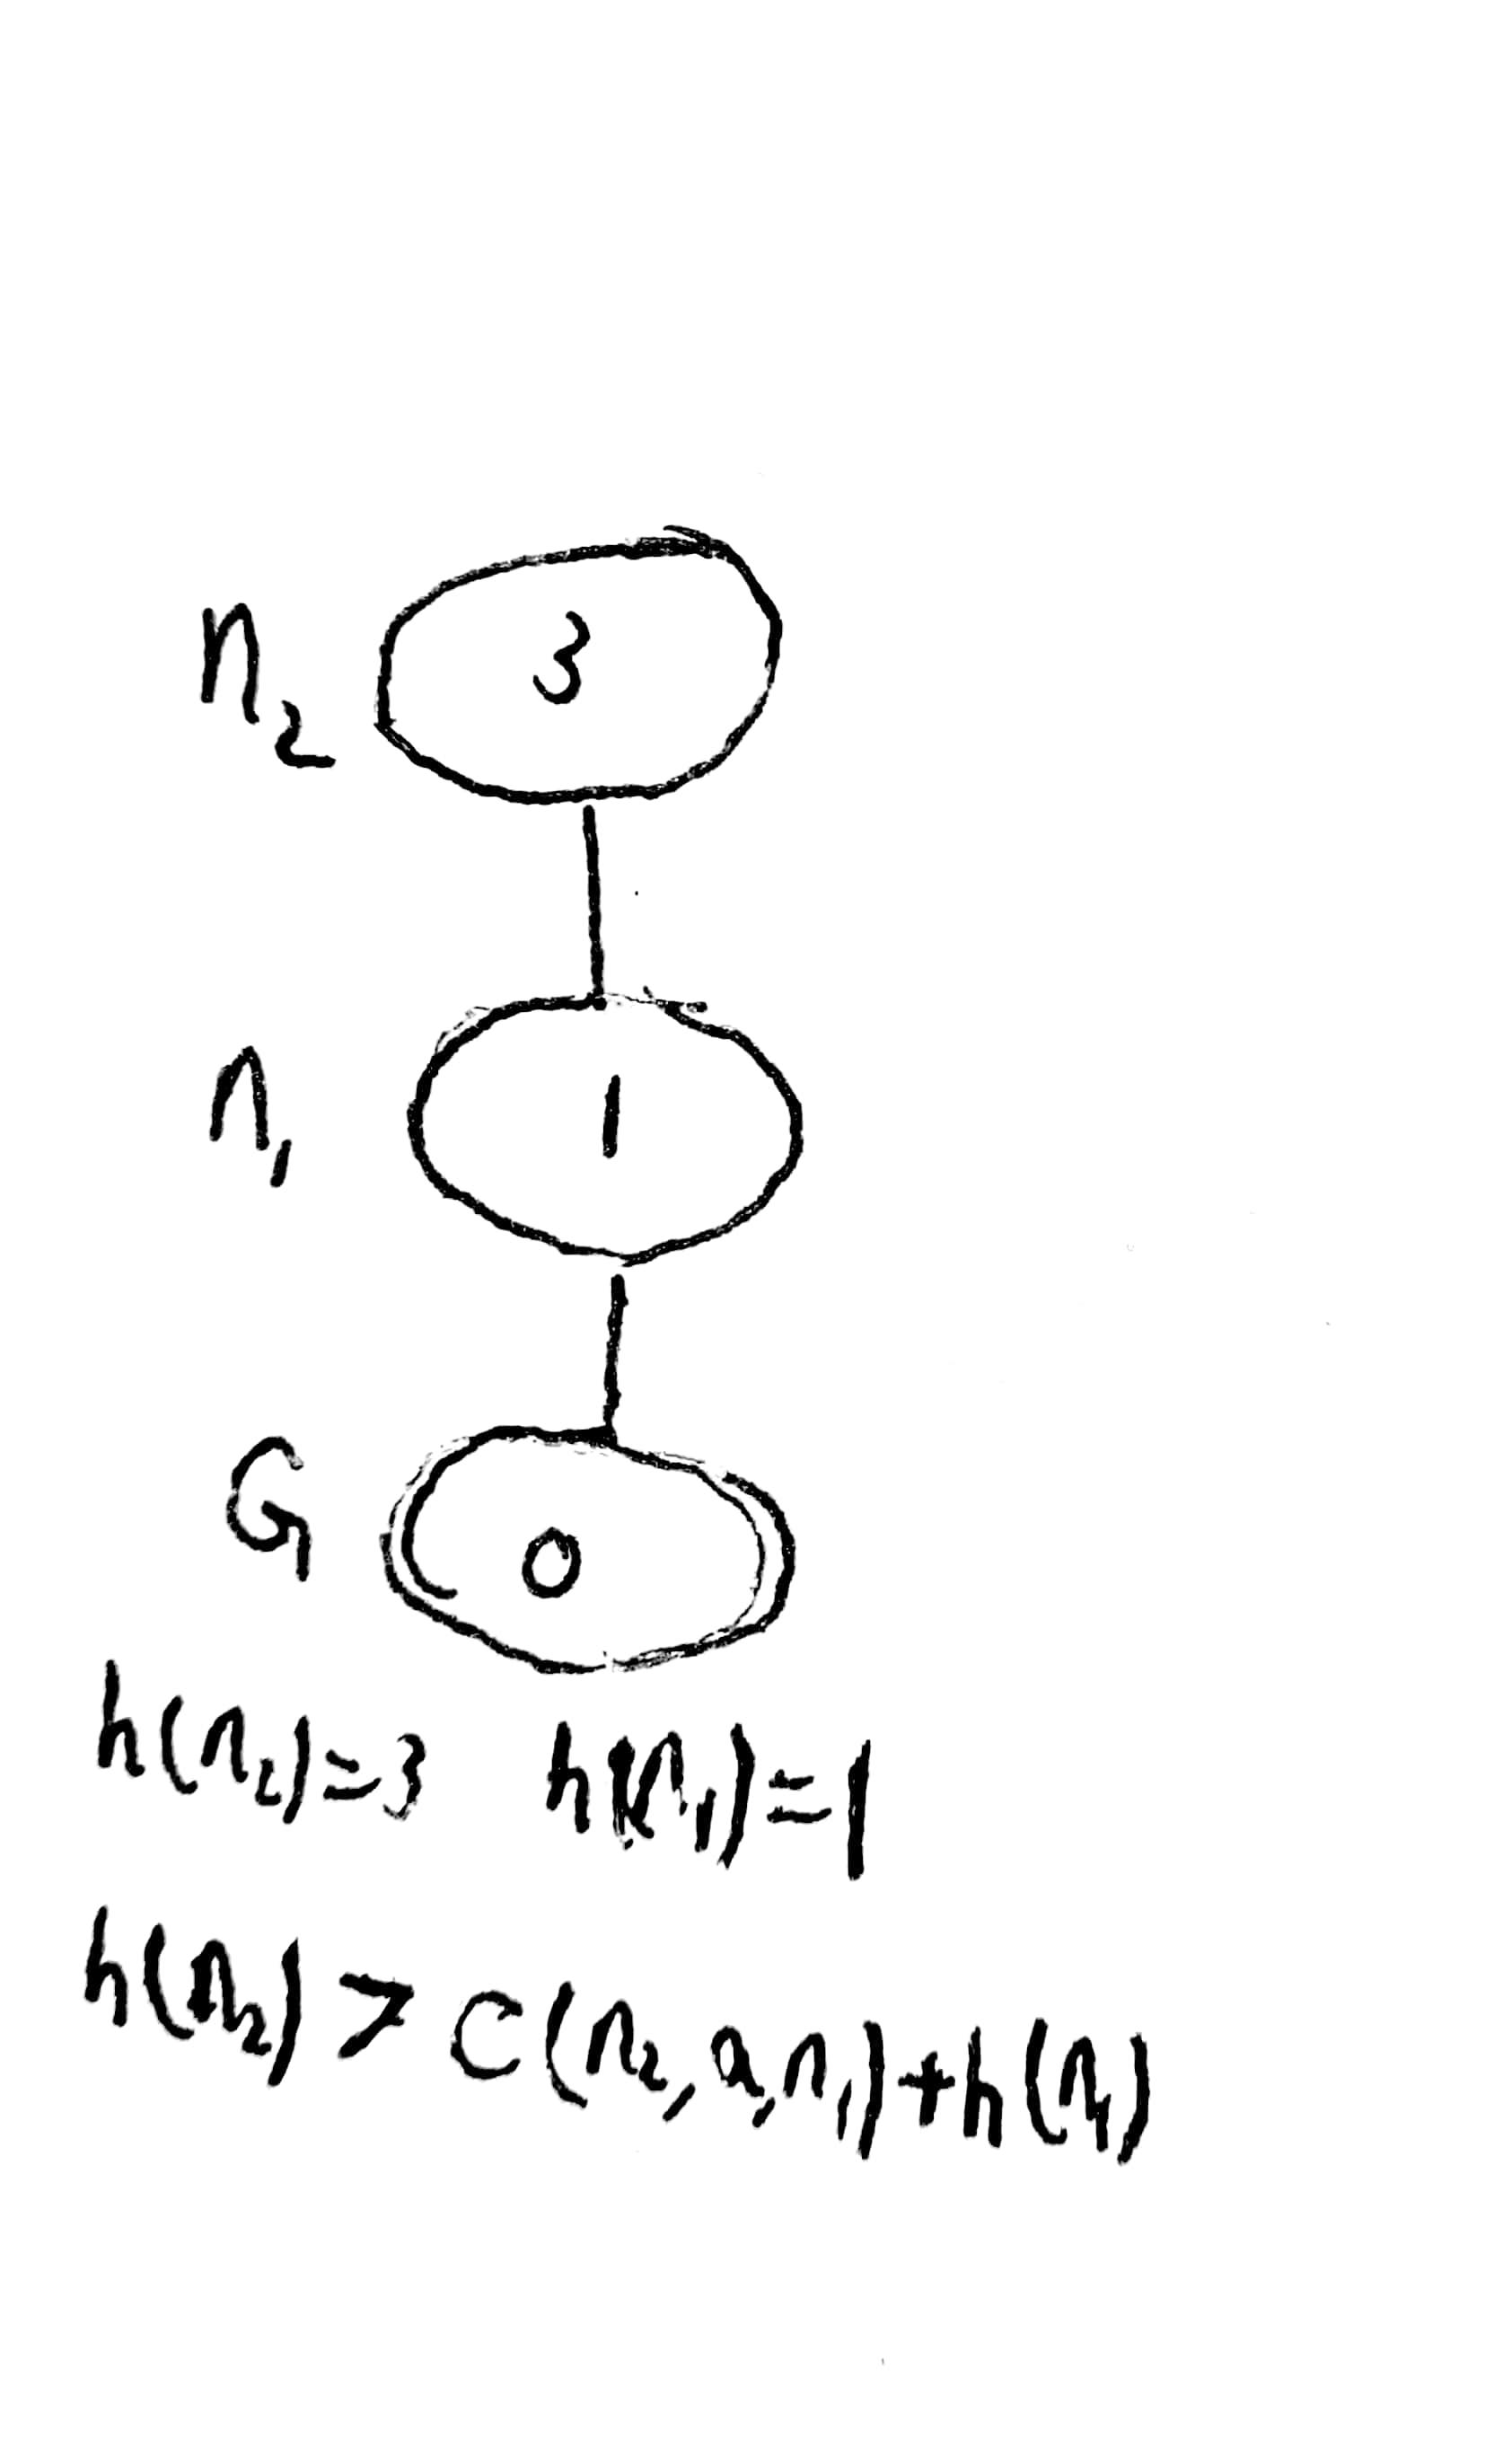 n₂ 3
n₁ 1
G 0
h(n₂)=3 h(n₁)=1
h(n₂) > C(n₂,a,n₁)+h(n₁)